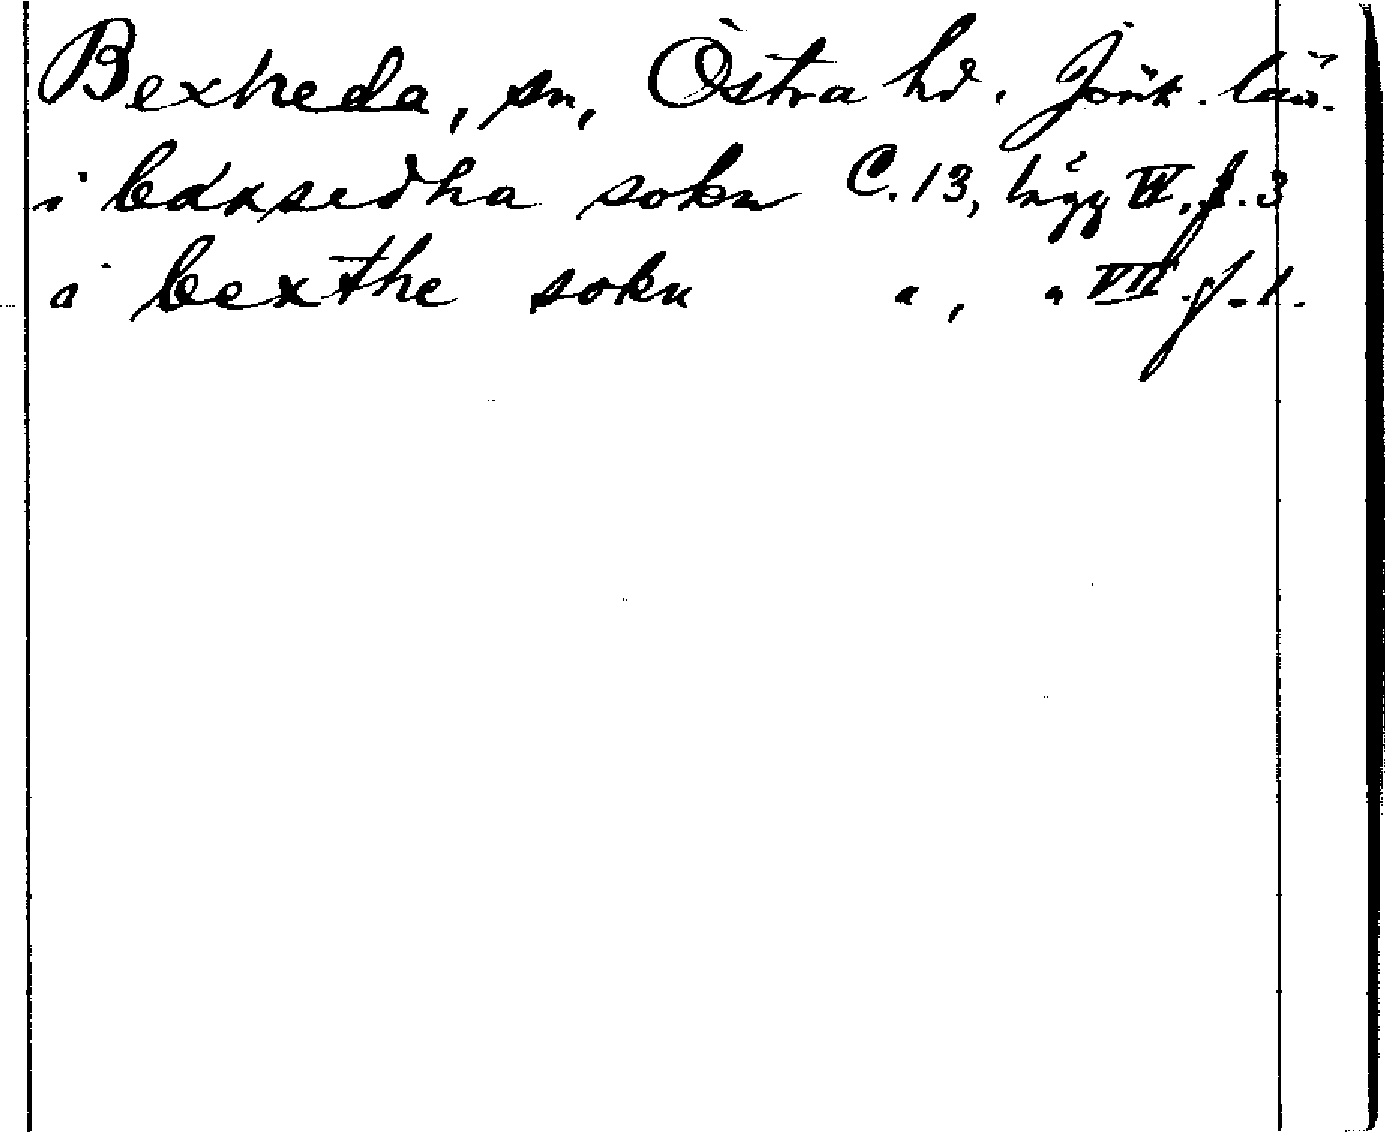 Bexheda, sn, Östra hd. Jönk. län.
i bäxsedha sokn C.13, lägg IV, f. 3
i bexthe sokn ", " VII f. 1.